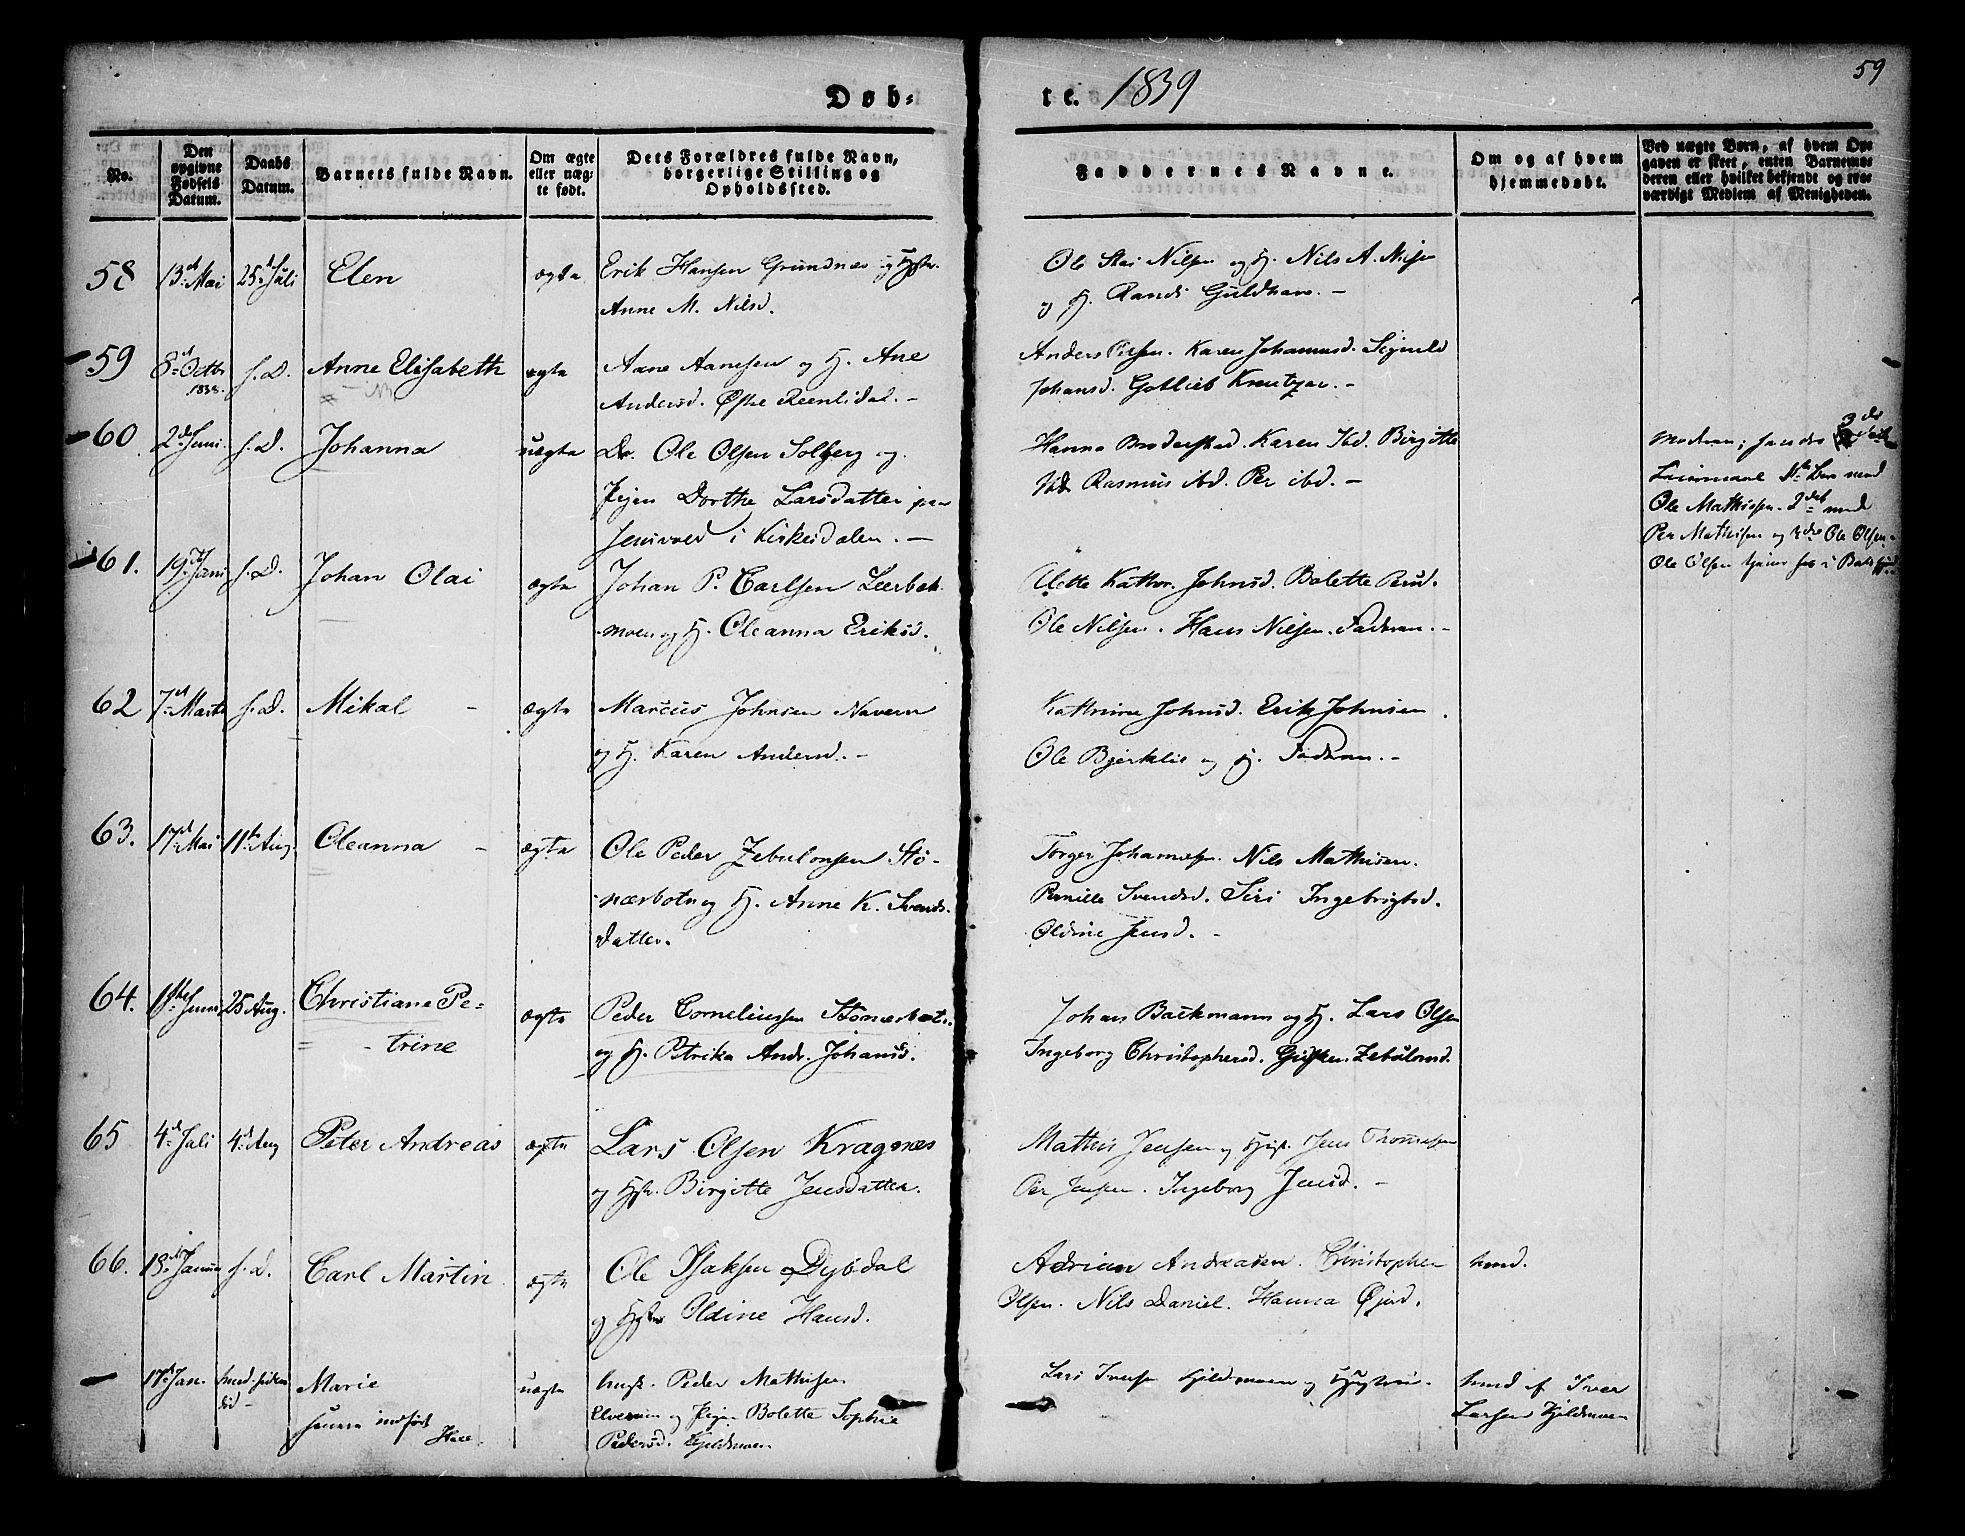 59
Døb-
te. 1839
No.
Den opgivne Fødsels Datum.
Daabs Datum.
Barnets fulde Navn.
Om ægte eller uæg-te født.
Dets Forældres fulde Navn, borgerlige Stilling og Opholdssted.
Faddernes Navne.
Om og af hvem hjemmedøbt.
Ved uægte Børn, af hvem Op-
gaven er skeet, enten Barnemo-
deren eller hvilket bekjendt og tro-
værdigt Medlem af Menigheden.
58 13de Mai 25de Juli Elen ægte Erik Hansen Grundnes og Hstr.
Anne M. Nilsd.
Ole Nilsen og H. Nils A.
og H. Randi Guldhav. -
59 8de Octbr 1838. s.D. Anne Elisabeth ægte Aane Aanesen og H. Ane
Andersd. Øfre
Anders Persen. Karen Johannesd.
Johansd. Gotlieb Kreutzer. -
60 2den Juni s.D. Johanna uægte Ole Olsen Solberg og
Pigen Dorthe Larsdatter paa
i Kirkesdalen. -
Hanna Broderstad. Karen Ibd. Birgitte
Ibd. Rasmus ibd. Per ibd. -
Moderen; hendes 3die
Leiermaal 1ste med
Ole Mathissen. 2det med
Per Mathisen og 3die Ole Olsen.
Ole Olsen tjener
61. 19de Juni s.D. Johan Olai ægte Johan P. Carlsen Leerbek-
moen og H. Oleanna Eriksd.
Kathr. Johnsd. Bolette
Ole Nilsen. Hans Nilsen. Faderen. -
62 7de Marts s.D. Mikal - ægte Marcus Johnsen Naveren
og H. Karen Andersd. -
Kathrine Johnsd. Erik Johnsen.
Ole Bjerklie og H. Faderen. -
63. 17de Mai 11te Aug. Oleanna - ægte Ole Peder Zebulonsen Stø-
nærbotn og H. Anne K. Svends-
datter.
Torger Johannesen. Nils Mathisen.
Pernille Svendsd. Siri Ingebrigtsd.
Oldine Jensd. -
64. 1ste Juni 25 Aug. Christiane Pe-
trine
ægte Peder Corneliussen Stønerbot.
og H. Petrika Andr. Johansd.
Johan Backmann og H. Lars Olsen
Ingeborg Christophersd. Zebulonsd.
65 4de Juli 4de Aug Peter Andreas ægte Lars Olsen Kragnes
og Hstr. Birgitte Jensdatter.
Mathis Jensen og Hst. Jens Thomesen
Per Jensen. Ingeborg Jensd. -
66. s.D. Carl Martin ægte Ole Isaksen Dybdal
og Hstr Oldine Hansd.
Adrian Andreasen. Christopher
Olsen. Nils Daniel. Hanna
hmd.
- 17de Jan. hmd. siden
død -
Marie
uægte Peder Mathisen
Elvevun og Pigen Bolette Sophie
Pedersd. Kjeldmoen
Lars Iversen Kjeldmoen og Hustru.
hmd af Iver
Larsen Kjeldmoen